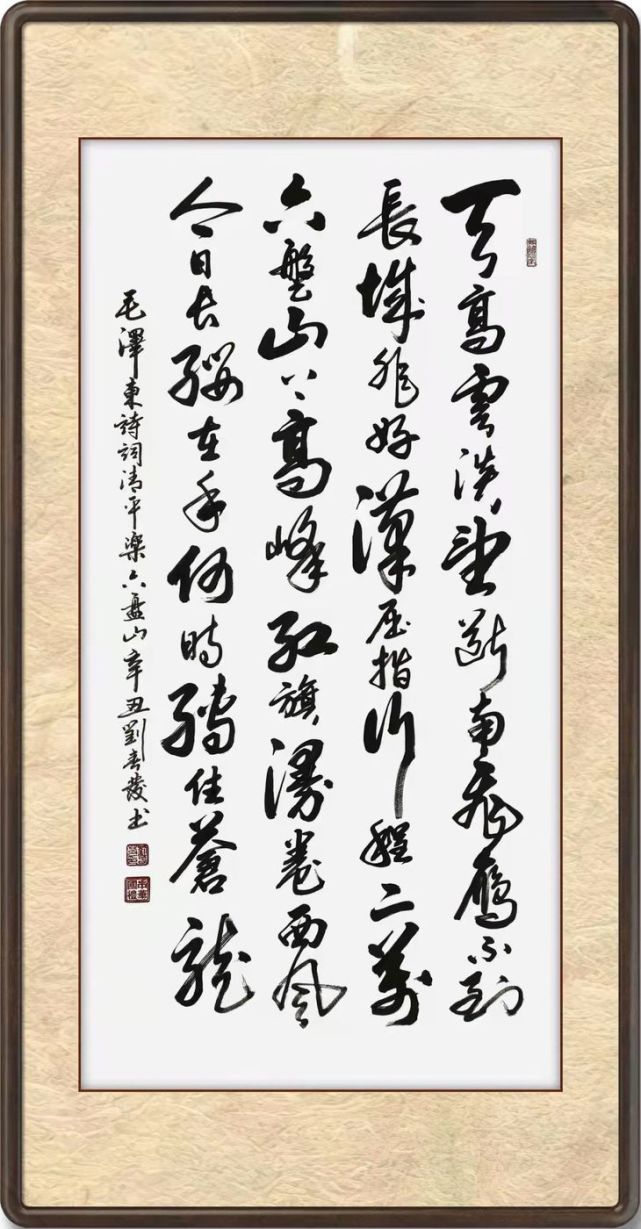 天高雲淡望斷南飛鴈不到
長城非好漢屈指行程二萬
六盤山上高峰紅旗漫卷西風
今日長纓在手何時縛住蒼龍
毛澤東詩詞清平樂六盤山辛丑劉春發書